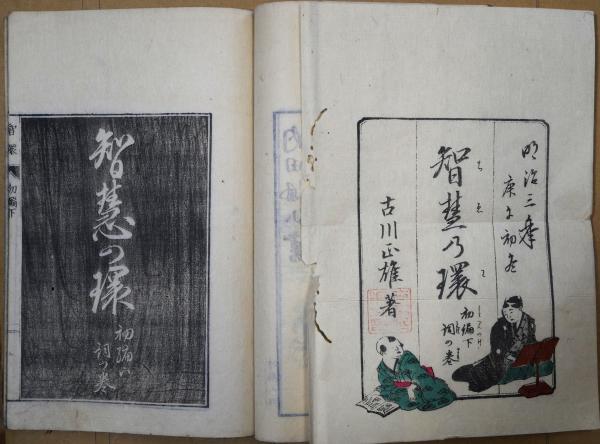 明治三年
庚午初冬
智慧乃環
ちゑのわ
初編下
詞の巻
古川正雄著
智慧の環
初編下
詞の巻
智環
初編下